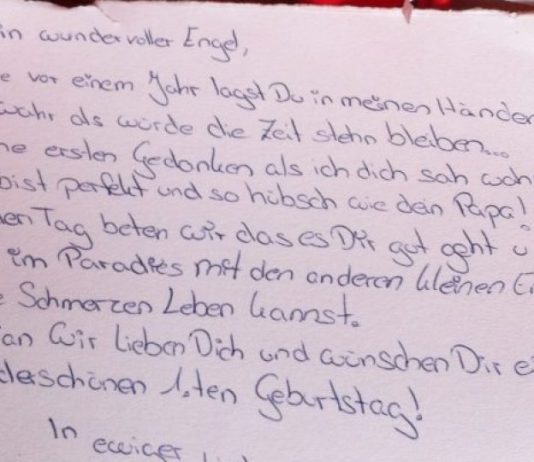 in wundervoller Engel,
e vor einem Jahr lagst Du in meinen Händen
wahr als würde die Zeit stehn bleiben...
ne ersten Gedanken als ich dich sah woh
bist perfekt und so hübsch wie dein Papa!
en Tag beten wir das es Dir gut geht ü
im Paradies mit den anderen kleinen E
e Schmerzen Leben kannst.
an Wir lieben Dich und wünschen Dir e
derschönen 1.ten Geburtstag!
In
ewiger